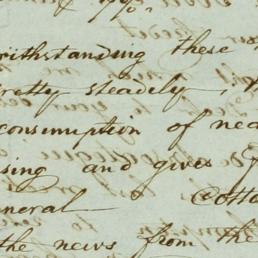 withstanding these
pretty steadily,
consumption of nea
sing and gives
neral Cotto
the news from the